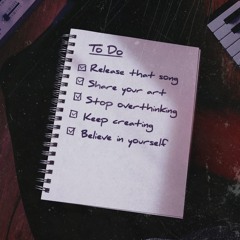 To Do
Release that song
Share your art
Stop overthinking
Keep creating
Believe in yourself